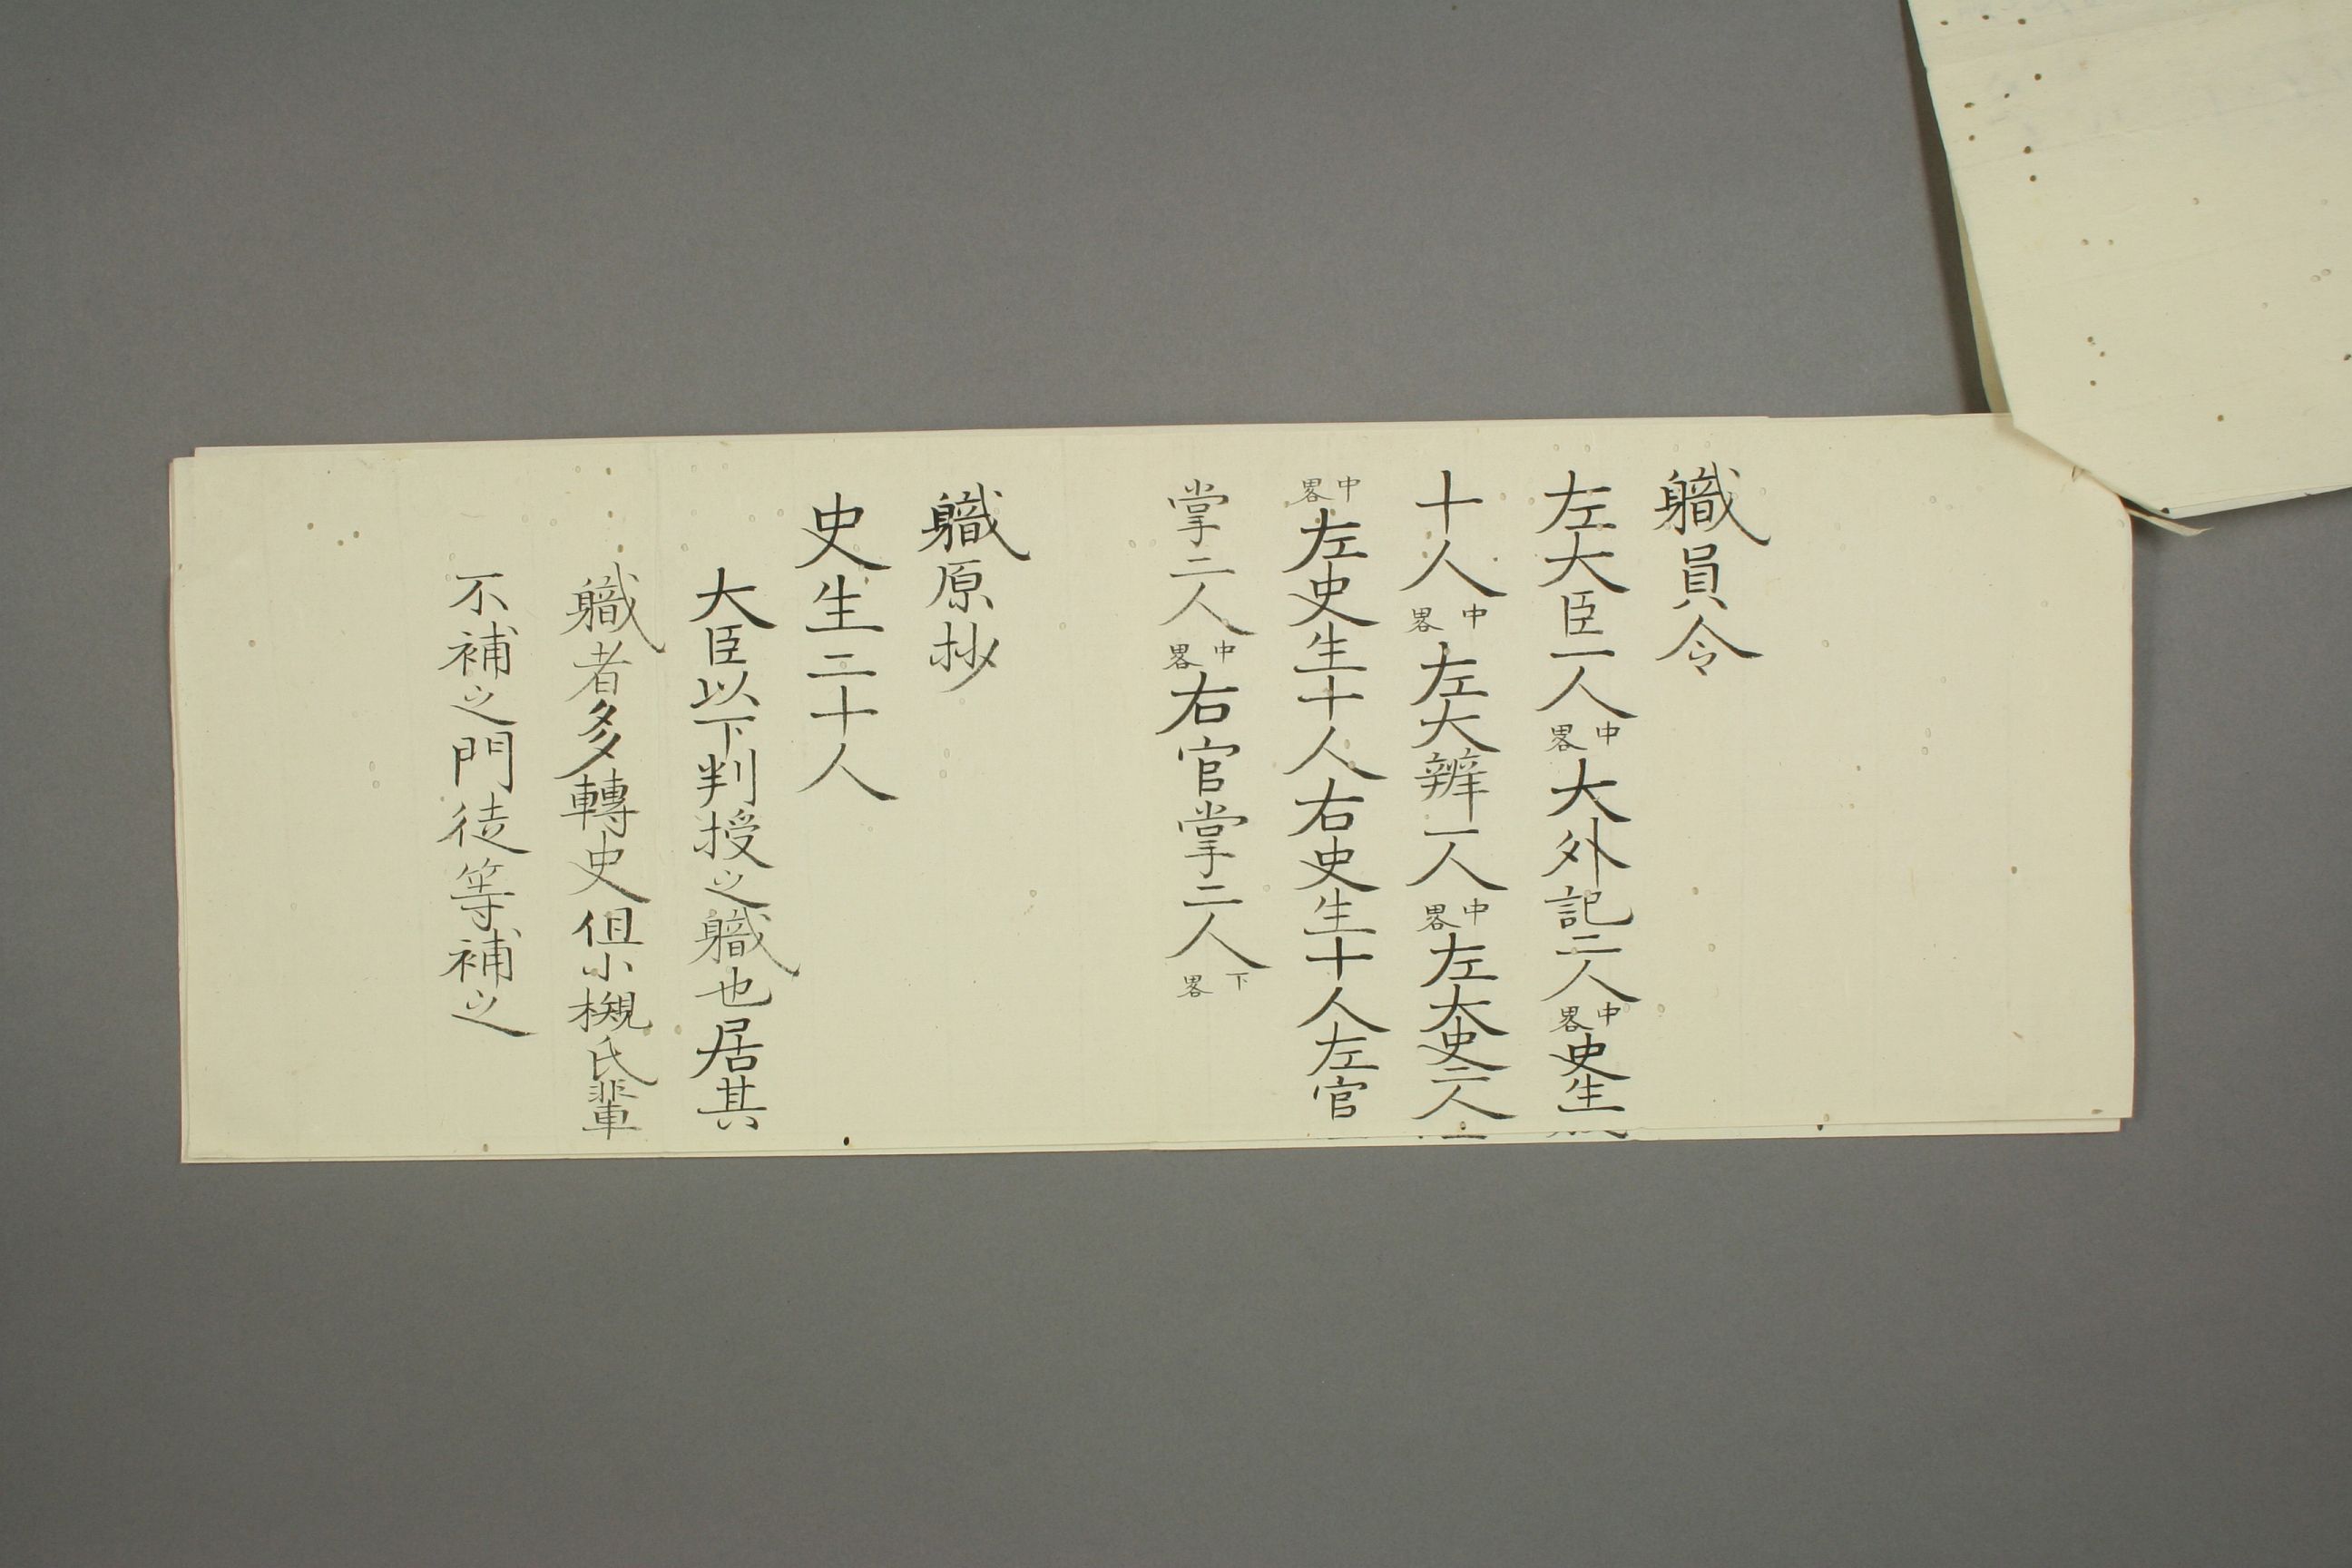 軄員令
左大臣一人中畧大外記二人中畧史生
十人中畧左大辨一人中畧左大史二人
中畧左史生十人右史生十人左官
掌二人中畧右官掌二人下畧
軄原抄
史生二十人
大臣以下判授之軄也居其
軄者多轉史但小槻氏輩
不補之門徒等補之